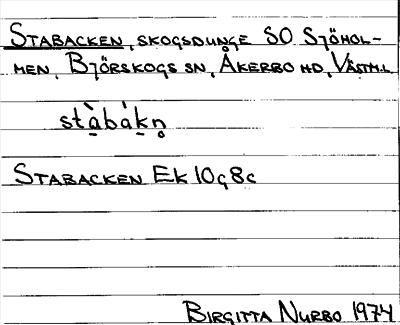 STABACKEN, SKOGSDUNGE SO SJÖHOL-
MEN, BJÖRSKOGS SN, ÅKERBO HD, VÄSTM.L
stà̱bàḵn̥
STABACKEN EK 10G8C
BIRGITTA NURBO 1974